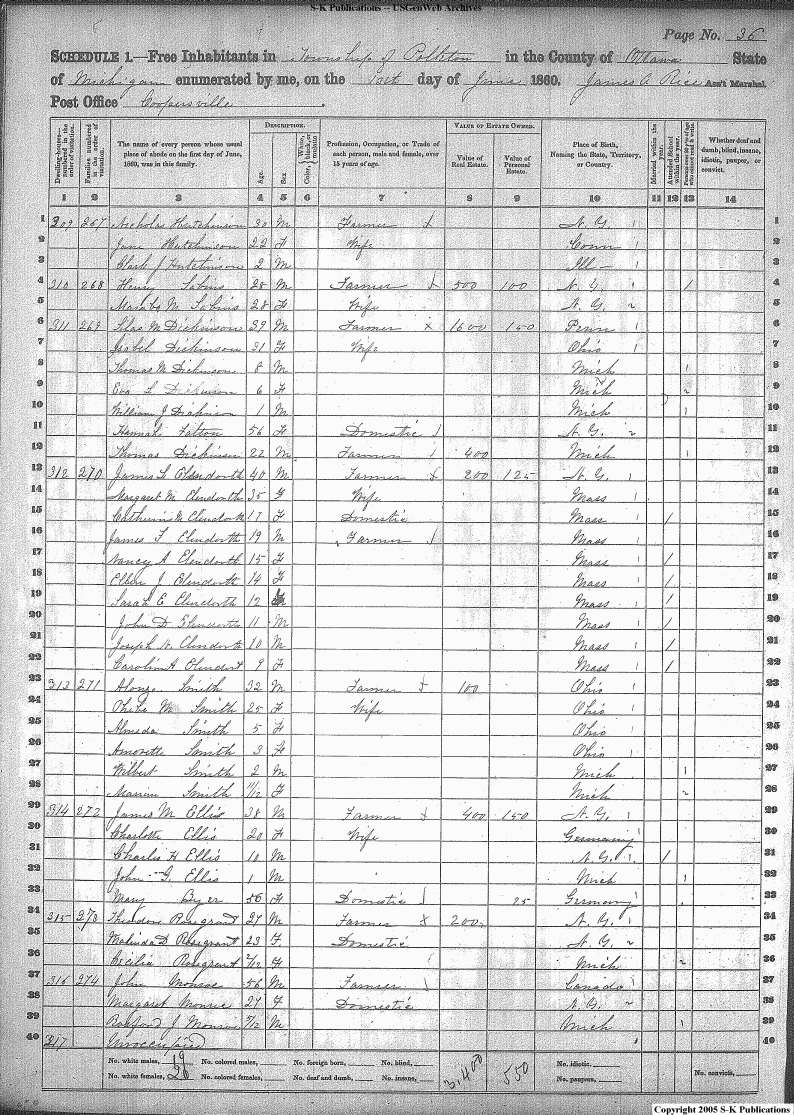 S-K Publications -- USGenWeb Archives
Page No. 36
SCHEDULE 1.—Free Inhabitants in Township of Polkton in the County of Ottawa State
of Michigan enumerated by me, on the 1st day of June 1860. James A Rice Ass't Marshal.
Post Office Coopersville.
Dwelling-houses—numbered in the order of visitation. Families numbered in the order of visitation. The name of every person whose usual place of abode on the first day of June, 1860, was in this family. DESCRIPTION. Age. Sex. Color, White, black, or mulatto. Profession, Occupation, or Trade of each person, male and female, over 15 years of age. VALUE OF ESTATE OWNED. Value of Real Estate. Value of Personal Estate. Place of Birth, Naming the State, Territory, or Country. Married within the year. Attended School within the year. Persons over 20 y'rs of age who cannot read & write. Whether deaf and dumb, blind, insane, idiotic, pauper, or convict.
1 2 3 4 5 6 7 8 9 10 11 12 13 14
1 309 267 Nicholas Hutchinson 30 M Farmer N.Y. 1
2 Jane Hutchinson 22 F Wife Conn 2
3 Clark J Hutchinson 2 M Ill 3
4 310 268 Henry Sabins 28 M Farmer 500 100 N.Y. 1 4
5 M Sabins 28 F Wife N.Y. 5
6 311 269 Silas M Dickinson 39 M Farmer 1600 150 Penn 6
7 Isabel Dickinson 31 F Wife Ohio 7
8 Thomas M Dickinson 8 M Mich 8
9 Eva L Dickinson 6 F Mich 9
10 William J Dickinson 1 M Mich 10
11 Hannah 56 F Domestic N.Y. 11
12 Thomas Dickinson 22 M Farmer 400 Mich 12
13 312 270 James L Elendorth 40 M Farmer 200 125 N.Y. 13
14 Margaret M Elendorth 35 F Wife Mass 14
15 Catherine M Elendorth 17 F Domestic Mass / 15
16 James F Elendorth 19 M Farmer Mass 16
17 Nancy A Elendorth 15 F Mass / 17
18 Ellen J Elendorth 14 F Mass / 18
19 Sarah E Elendorth 12 Mass / 19
20 John D Elendorth 11 M Mass / 20
21 Joseph N Elendorth 10 M Mass / 21
22 Caroline A Elendort 9 F Mass / 22
23 313 271 Alonzo Smith 32 M Farmer 100 Ohio 23
24 M Smith 25 F Wife Ohio 24
25 Almeda Smith 5 F Ohio 25
26 Amorette Smith 3 F Ohio 26
27 Wilbert Smith 2 M Mich 27
28 Smith 11/12 F Mich 28
29 314 272 James M Ellis 38 M Farmer 400 150 N.Y. 29
30 Charlotte Ellis 20 F Wife Germany 30
31 Charles H Ellis 10 M N.Y. / 31
32 John G. Ellis 1 M Mich 32
33 Mary Byer 56 F Domestic 25 Germany 33
34 315 273 Theodore Rosegrant 27 M Farmer 200 N.Y. 34
35 Malinda D Rosegrant 23 F Domestic N.Y. 35
36 Cecilia Rosegrant 2/12 F Mich 36
37 316 274 John Monroe 56 M Farmer Canada 37
38 Margaret Monroe 27 F Domestic N.Y. 38
39 J Monroe 5/12 M Mich 39
40 317 Unoccupied 40
No. white males, 19 No. colored males, No. foreign born, No. blind, 3,400 550 No. idiotic, No. convicts,
No. white females, 20 No. colored females, No. deaf and dumb, No. insane, No. paupers,
Copyright 2005 S-K Publications